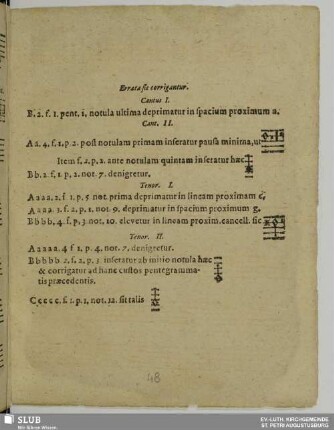 Errata sic corrigantur.
Cantus I.
B. 2. f. 1. pent. 1. notula ultima deprimatur in spacium proximum a.
Cant. II.
Aa. 4. f. 1. p. 2. post notulam primam inseratur pausa minima, ut
Item f. 2. p. 2. ante notulam quintam inseratur hæc
Bb. 2. f. 1. p. 2. not. 7. denigretur.
Tenor. I.
Aaaa. 2. f 1. p. 5 not. prima deprimatur in lineam proximam c,
Aaaa. 3. f. 2. p. 1. not. 9. deprimatur in spacium proximum g.
Bbbb. 4. f. p. 3. not. 10. elevetur in lineam proxim. cancell. sic
Tenor. II.
Aaaaa. 4 f 1. p. 4. not. 7. denigretur.
Bbbbb 2. f. 2. p. 3. inseratur ab initio notula hæc
& corrigatur ad hanc custos pentegramma-
tis præcedentis.
Ccccc. f. 1. p. 1. not. 12. sit talis
48
SLUB
Wir führen Wissen.
EV.-LUTH. KIRCHGEMEINDE
ST. PETRI AUGUSTUSBURG